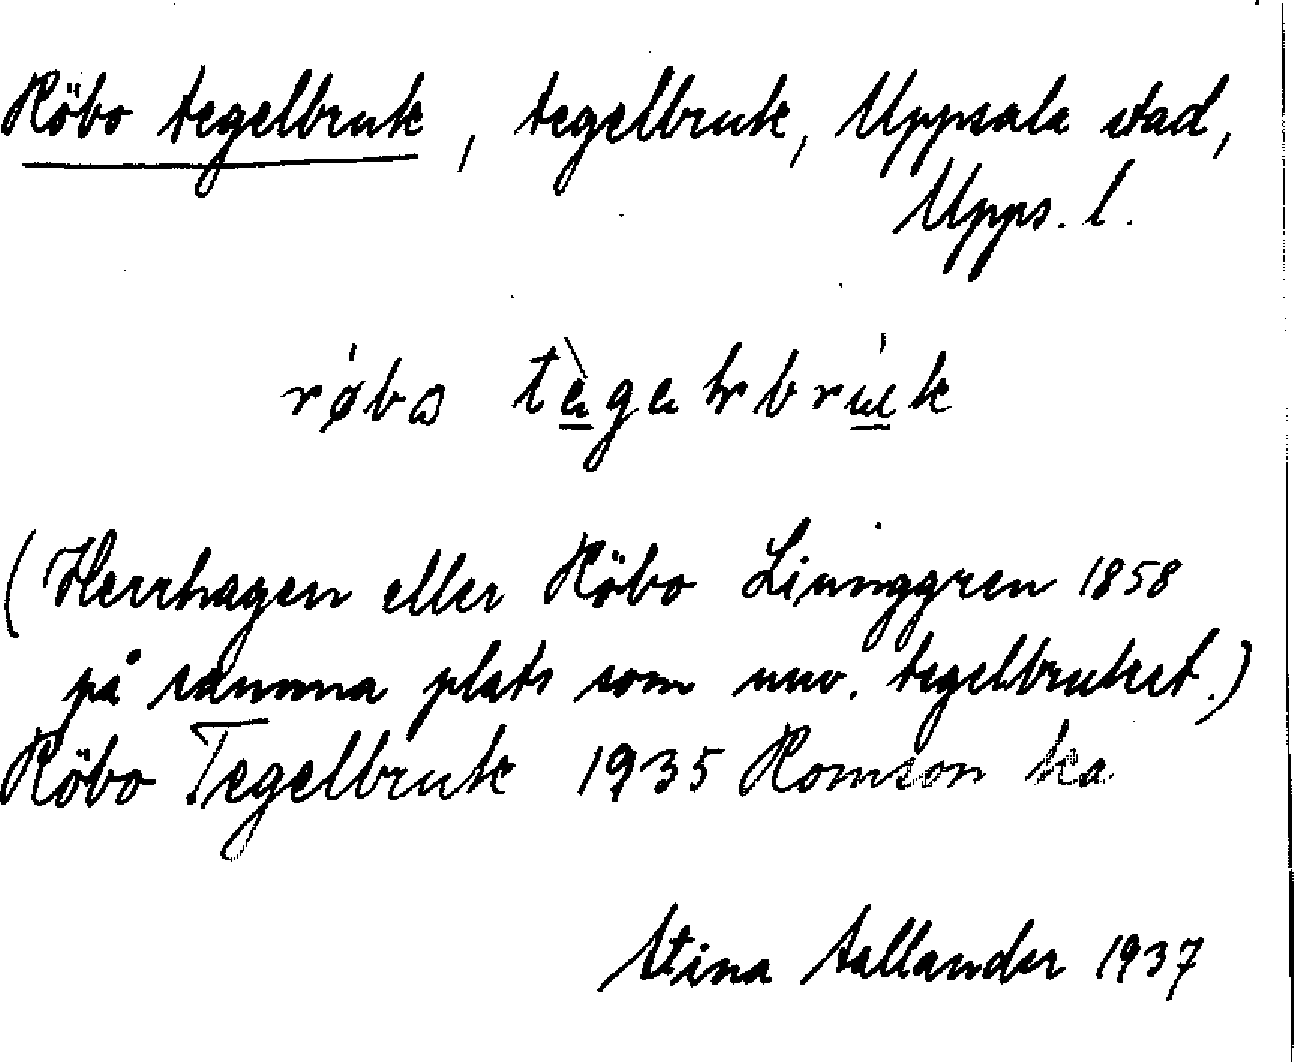 Röbo tegelbruk, tegelbruk, Uppsala stad,
Upps. l.
(Herrhagen eller Röbo Liunggren 1858
på samma plats som nuv. tegelbruket.)
Röbo Tegelbruk 1935 Romson ka
Stina Sallander 1937